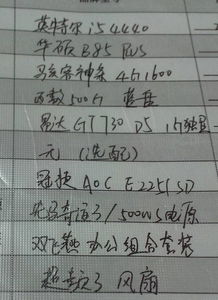 英特尔 i5 4440
华硕 B85 Plus
马克客神条 4G1600
西数500G 蓝盘
昂达 GT730 D5 1G独显
元 (选配)
冠捷 AOC E2251SD
先马奇迹3/500W电源
双飞燕 办公组合套装
超频3 风扇